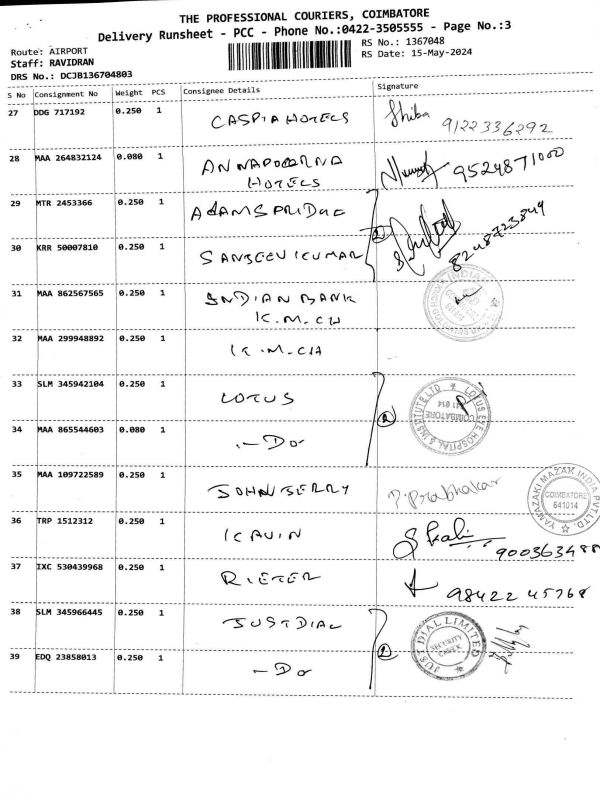 THE PROFESSIONAL COURIERS, COIMBATORE
Delivery Runsheet - PCC - Phone No.:0422-3505555 - Page No.:3
Route: AIRPORT
RS No.: 1367048
Staff: RAVIDRAN
RS Date: 15-May-2024
DRS No.: DCJB136704803
S No Consignment No Weight PCS Consignee Details Signature
27 DDG 717192 0.250 1 CASPIA HOTELS Shiba 9122336292
28 MAA 264832124 0.080 1 ANNAPOORNA HOTELS 9524871000
29 MTR 2453366 0.250 1 ADAMSPRIDGE
30 KRR 50007810 0.250 1 SANJEEVIKUMAR 2 8248723849
31 MAA 862567565 0.250 1 INDIAN BANK K.M.CH
32 MAA 299948892 0.250 1 K.M.CH
33 SLM 345942104 0.250 1 LOTUS
34 MAA 865544603 0.080 1 -Do 2
LOTUS EYE HOSPITAL & INSTITUTE LTD
COIMBATORE
35 MAA 109722589 0.250 1 JOHN JERRY P. Prabhakar
YAMAZAKI MAZAK INDIA PVT. LTD.
COIMBATORE
641014
36 TRP 1512312 0.250 1 KAVIN 900363488
37 IXC 530439968 0.250 1 RIETER 98422 45768
38 SLM 345966445 0.250 1 JUSTDIAL
39 EDQ 23858013 0.250 1 -Do 2
JUST DIAL LIMITED
SECURITY
CHECK